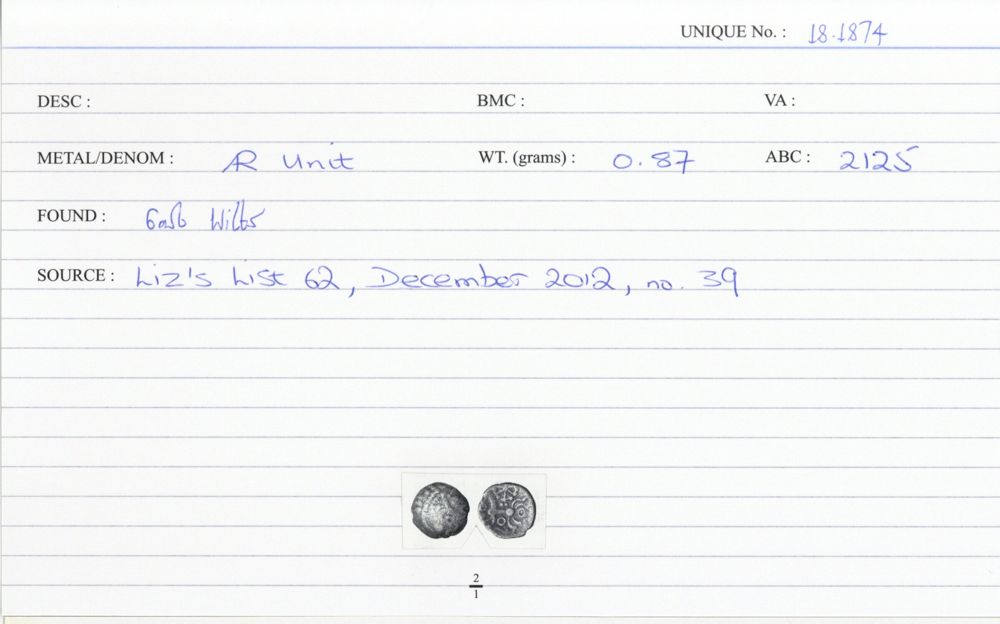 UNIQUE No. : 18.1874
DESC : BMC : VA :
METAL/DENOM : AR Unit WT. (grams) : 0.87 ABC : 2125
FOUND : Wilts
SOURCE : Liz's List 62, December 2012, no. 39
2
1